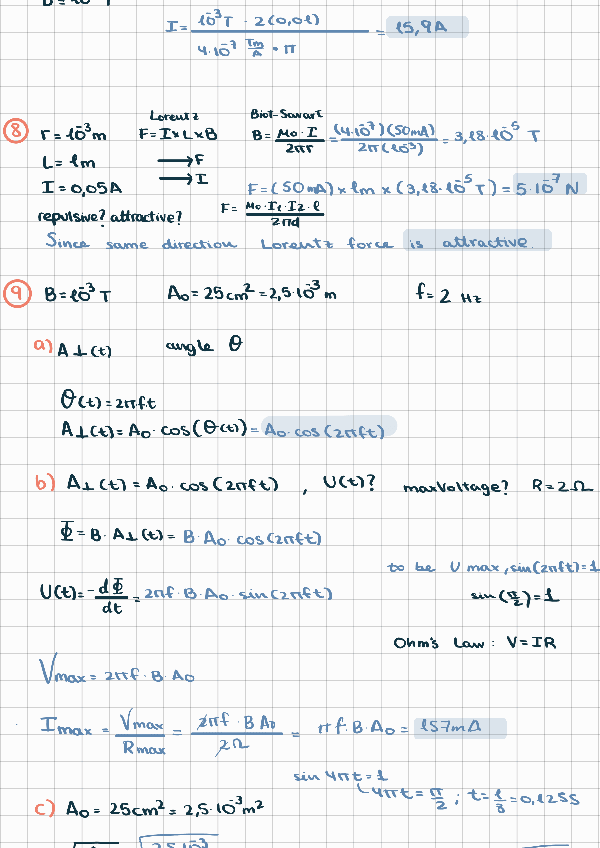 I = 10⁻³T · 2(0,01) / 4·10⁻⁷ Tm/A · π = 15,9A
Lorentz Biot-Savart
8 r = 10⁻³m F = I×L×B B = Mo·I / 2πr = (4·10⁻⁷)(50mA) / 2π(10⁻³) = 3,18·10⁻⁵ T
L = 1m → F
I = 0,05A → I F = (50mA) × 1m × (3,18·10⁻⁵T) = 5·10⁻⁷ N
repulsive? attractive? F = Mo·I₁·I₂·l / 2πd
Since same direction Lorentz force is attractive.
9 B = 10⁻³ T A₀ = 25cm² = 2,5·10⁻³ m f = 2 Hz
a) A⊥(t) angle θ
θ(t) = 2πft
A⊥(t) = A₀·cos(θ(t)) = A₀·cos(2πft)
b) A⊥(t) = A₀·cos(2πft) , U(t)? max Voltage? R = 2Ω
Φ = B·A⊥(t) = B·A₀·cos(2πft)
to be U max, sin(2πft)=1
U(t) = -dΦ/dt = 2πf·B·A₀·sin(2πft) sin(π/2) = 1
Ohm's Law: V = IR
Vmax = 2πf·B·A₀
Imax = Vmax / Rmax = 2πf·B A₀ / 2Ω = πf·B·A₀ = 157mA
sin 4πt = 1
4πt = π/2 ; t = 1/8 = 0,125s
c) A₀ = 25cm² = 2,5·10⁻³m²